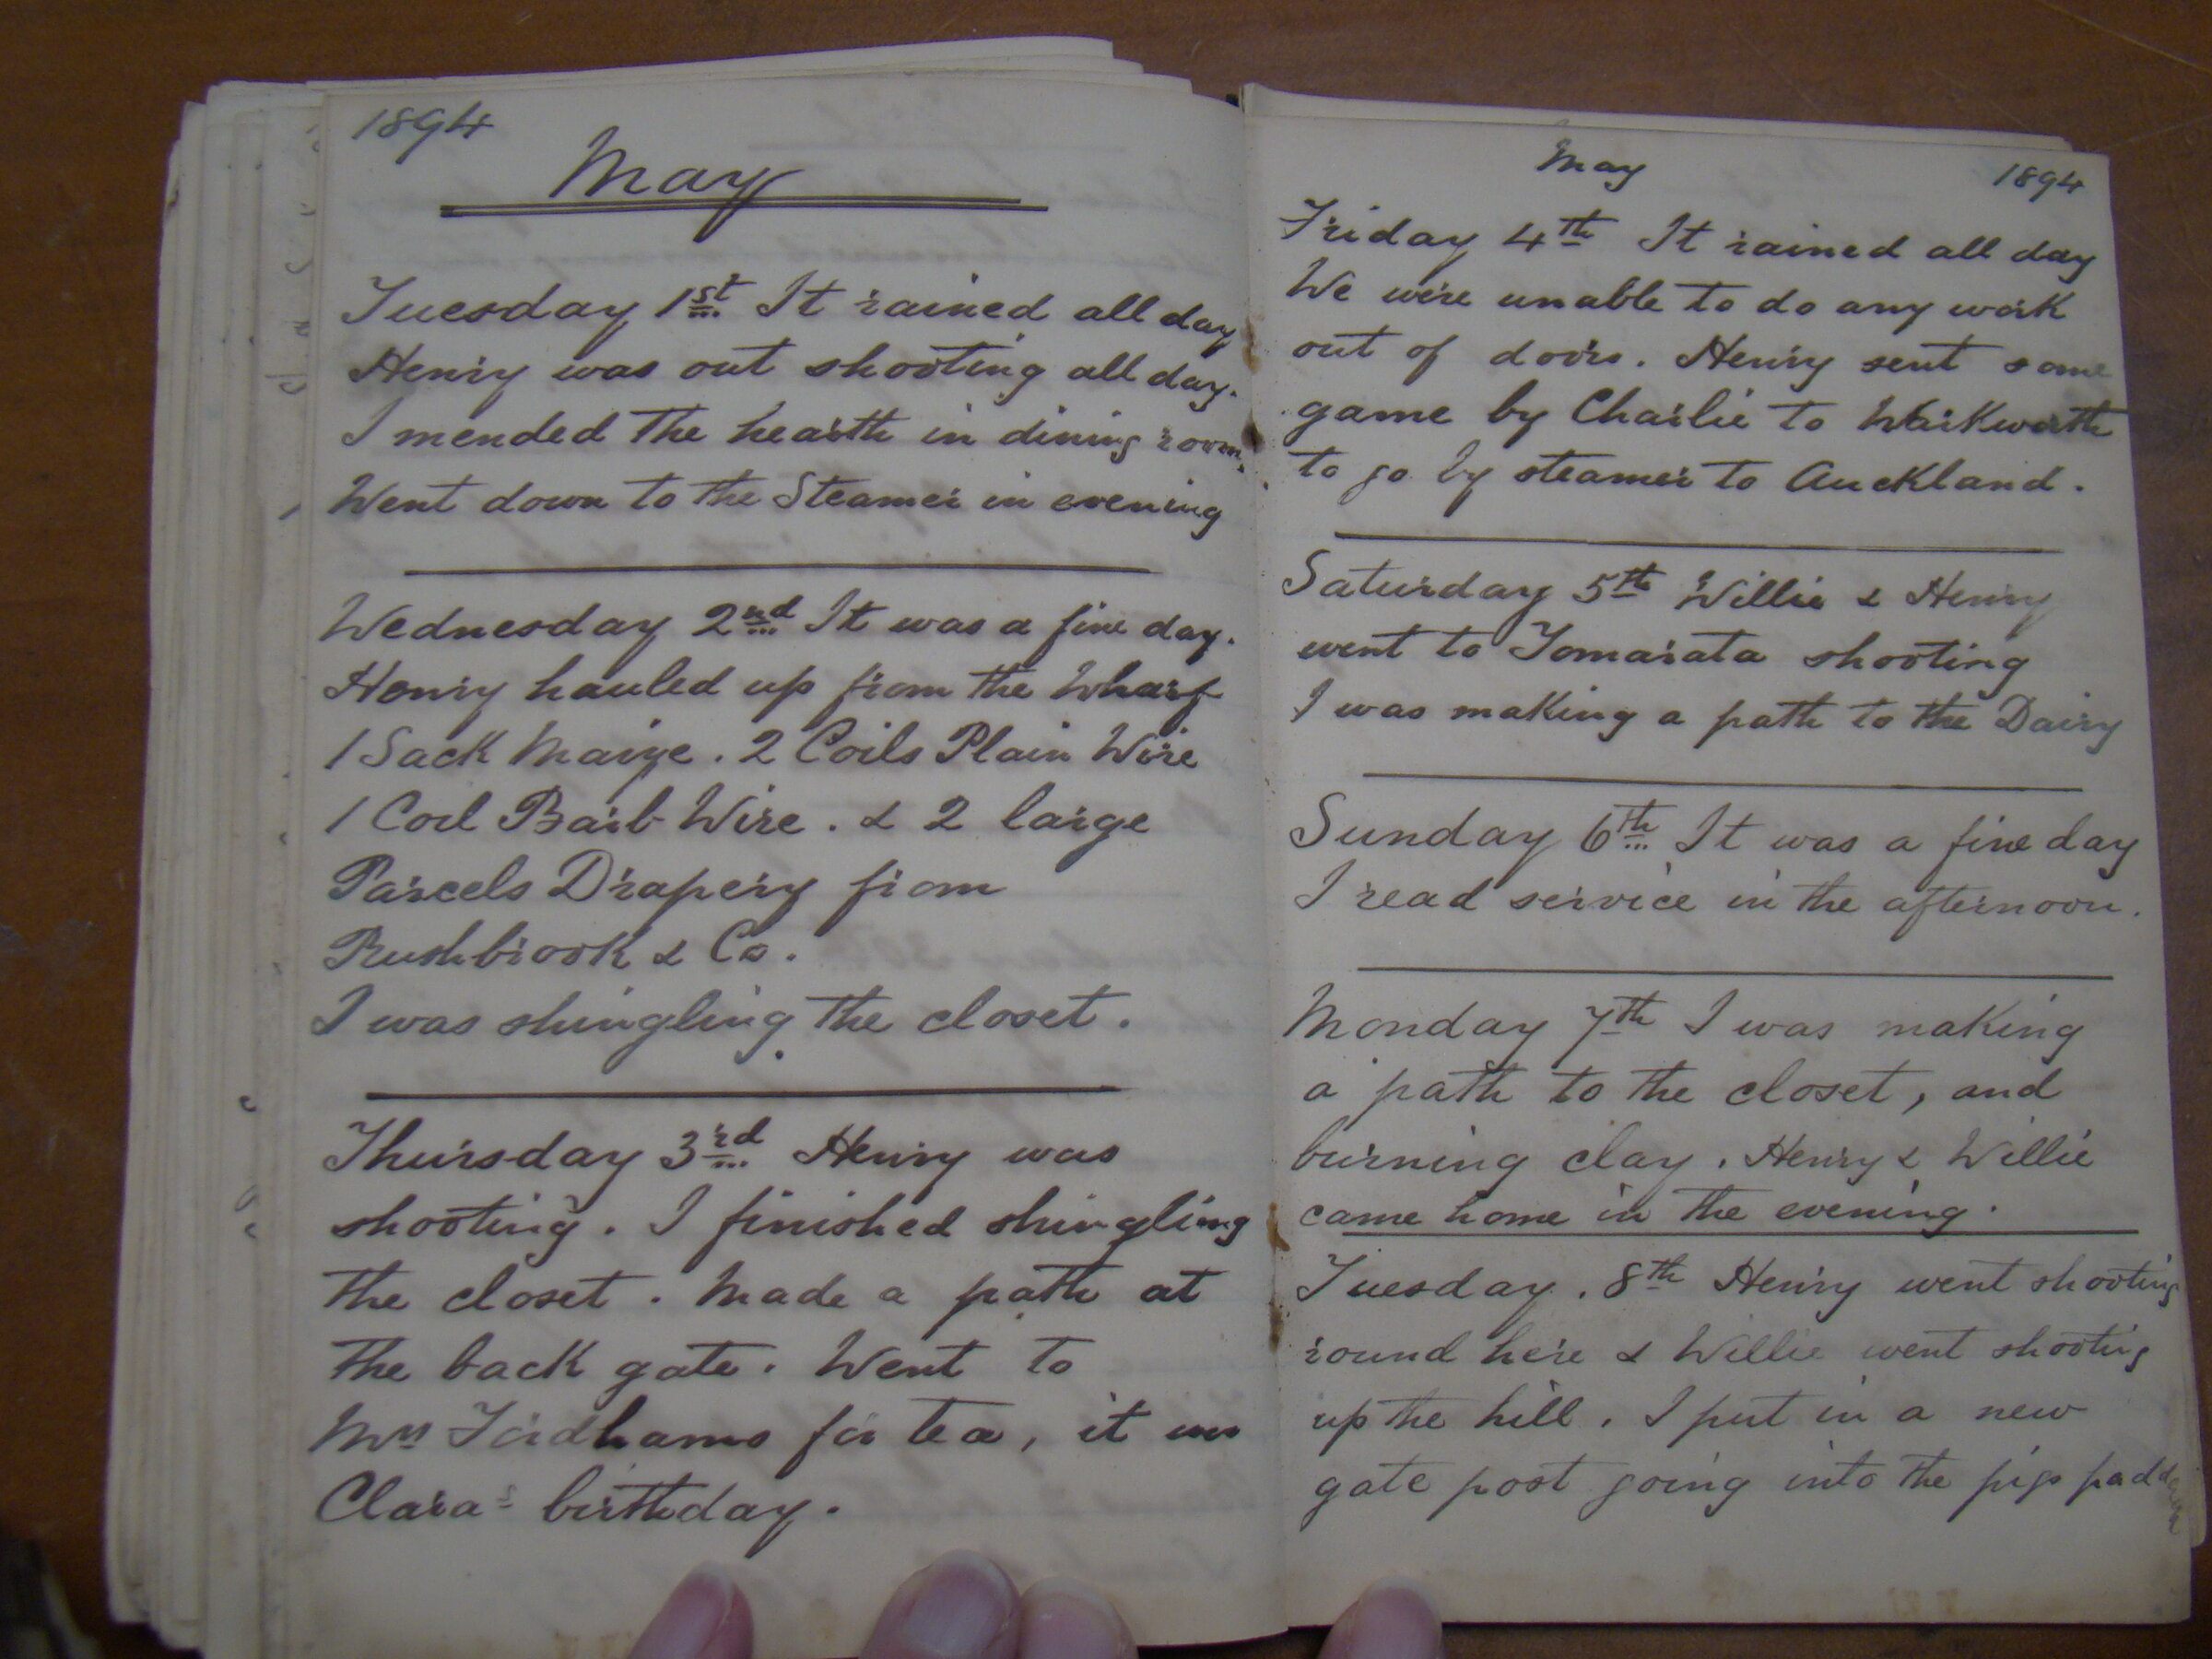 1894
May
Tuesday 1st It rained all day
Henry was out shooting all day.
I mended the hearth in dining room.
Went down to the Steamer in evening
Wednesday 2nd It was a fine day.
Henry hauled up from the Wharf
1 Sack Maize. 2 Coils Plain Wire
1 Coil Barb Wire. & 2 large
Parcels Drapery from
Rushbrook & Co.
I was shingling the closet.
Thursday 3rd Henry was
shooting. I finished shingling
the closet. Made a path at
the back gate. Went to
Mrs Fordhams for tea, it was
Clara's birthday.
May 1894
Friday 4th It rained all day
We were unable to do any work
out of doors. Henry sent some
game by Charlie to Warkworth
to go by steamer to Auckland.
Saturday 5th Willie & Henry
went to Tomarata shooting
I was making a path to the Dairy
Sunday 6th It was a fine day
I read service in the afternoon.
Monday 7th I was making
a path to the closet, and
burning clay. Henry & Willie
came home in the evening.
Tuesday. 8th Henry went shooting
round here & Willie went shooting
up the hill. I put in a new
gate post going into the pigs paddock